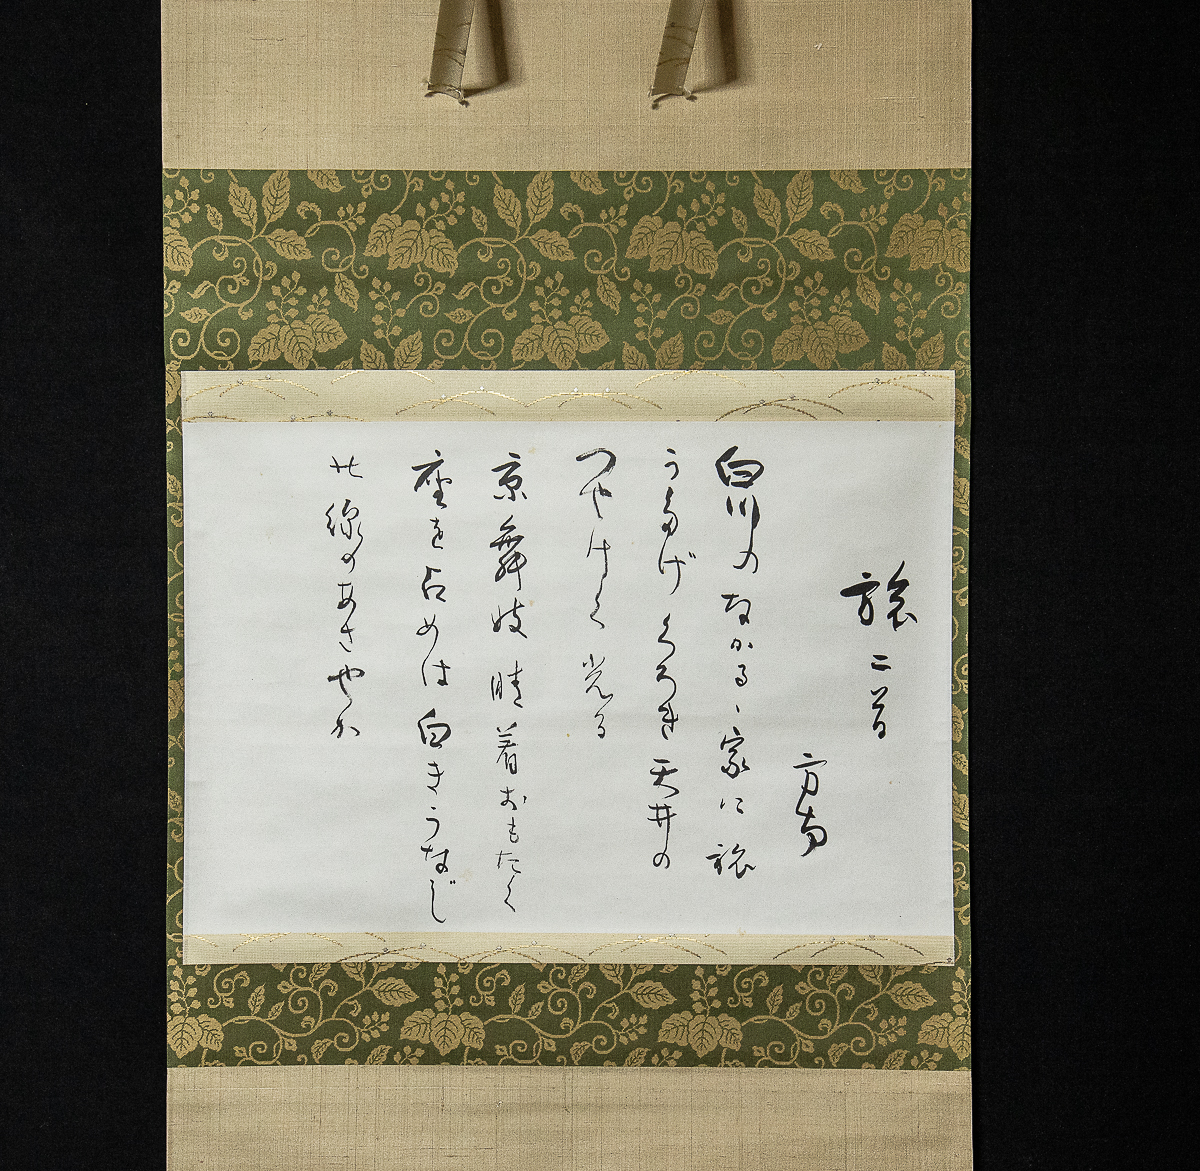 旅二首
方南
白川のなかるゝ家に旅
うたげくろき天井の
つやけく光る
京舞妓晴着おもたく
座を占めは白きうなじ
線のあさやか